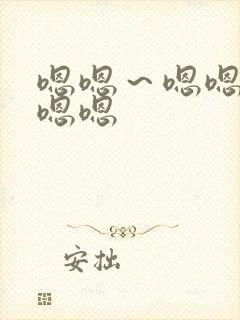 嗯嗯～嗯嗯
嗯嗯
安拙